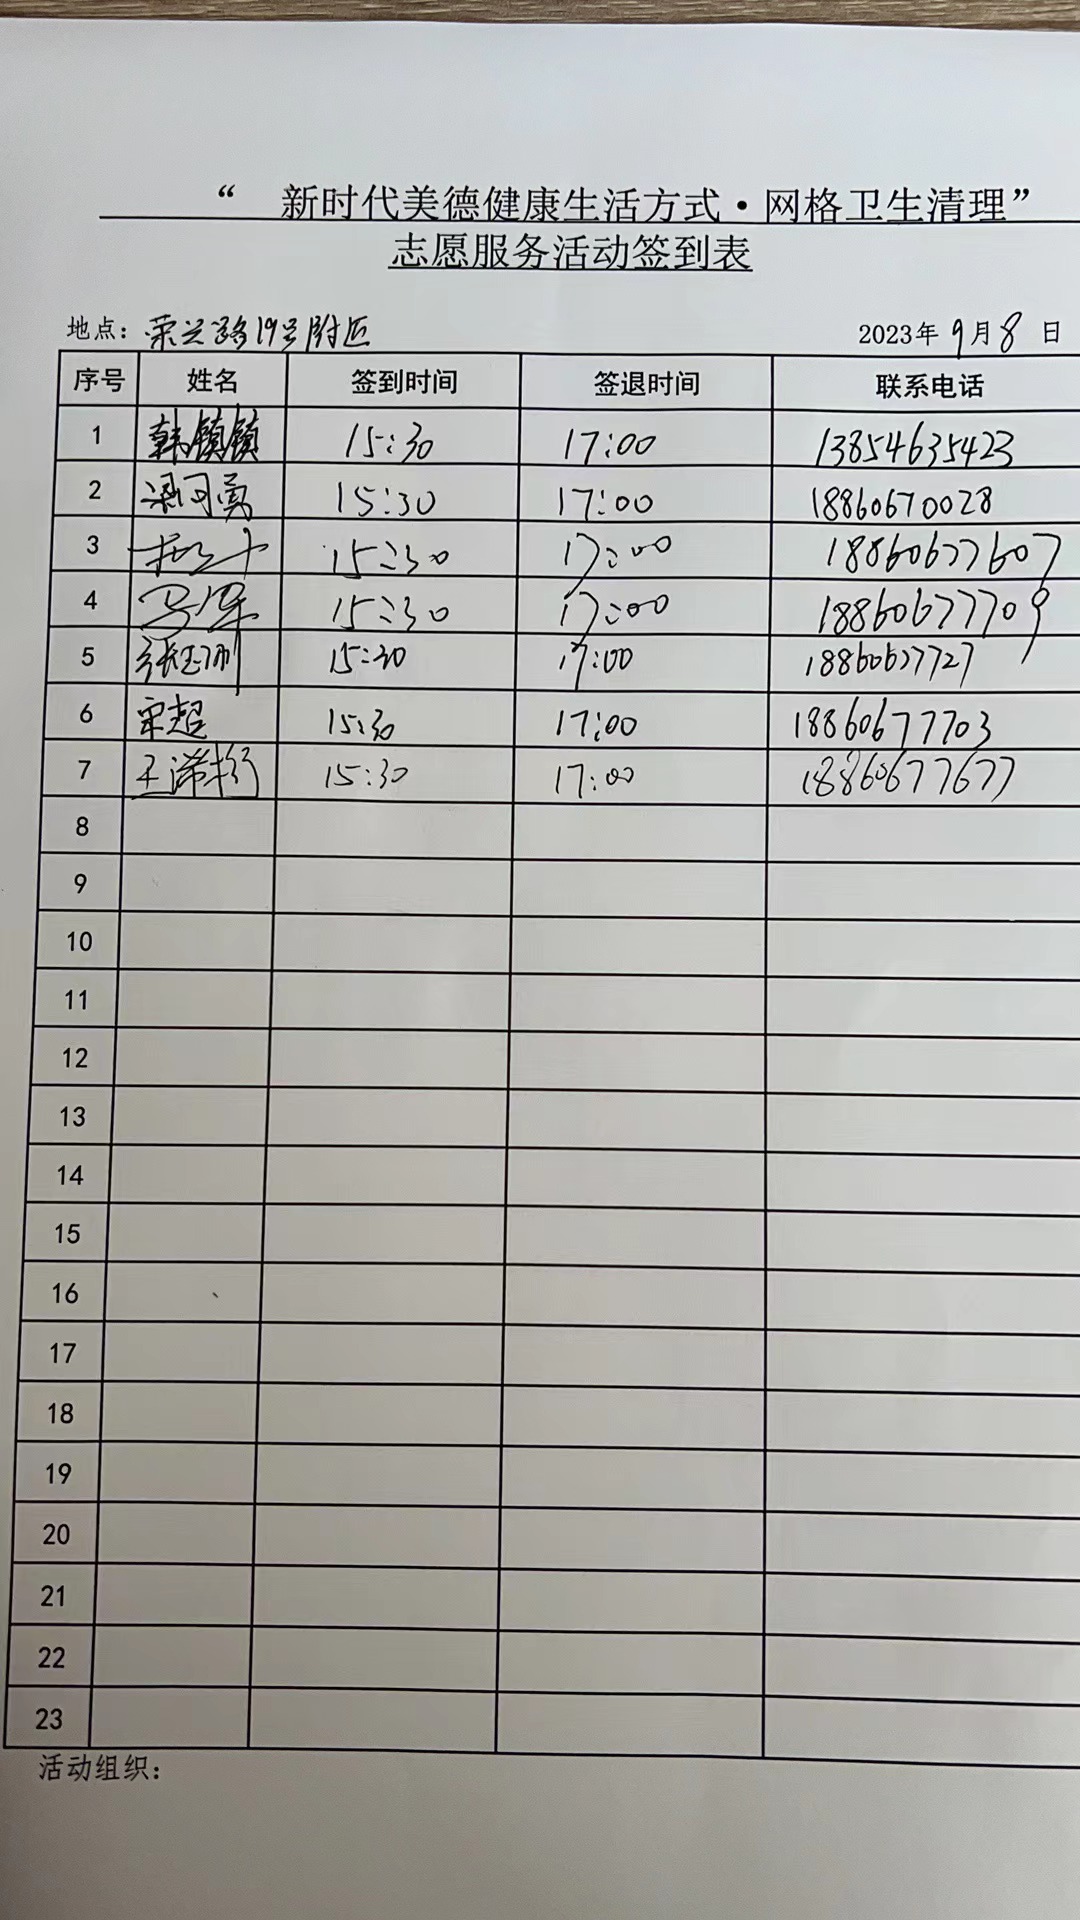 “ 新时代美德健康生活方式·网格卫生清理”
志愿服务活动签到表
地点: 荣兴路19号附近 2023年9月8日
序号 姓名 签到时间 签退时间 联系电话
1 韩镇镇 15:30 17:00 13854635423
2 梁可勇 15:30 17:00 18860670028
3 15:30 17:00 18860677607
4 15:30 17:00 18860677709
5 15:30 17:00 18860677727
6 宋超 15:30 17:00 18860677703
7 15:30 17:00 18860677677
8
9
10
11
12
13
14
15
16
17
18
19
20
21
22
23
活动组织: